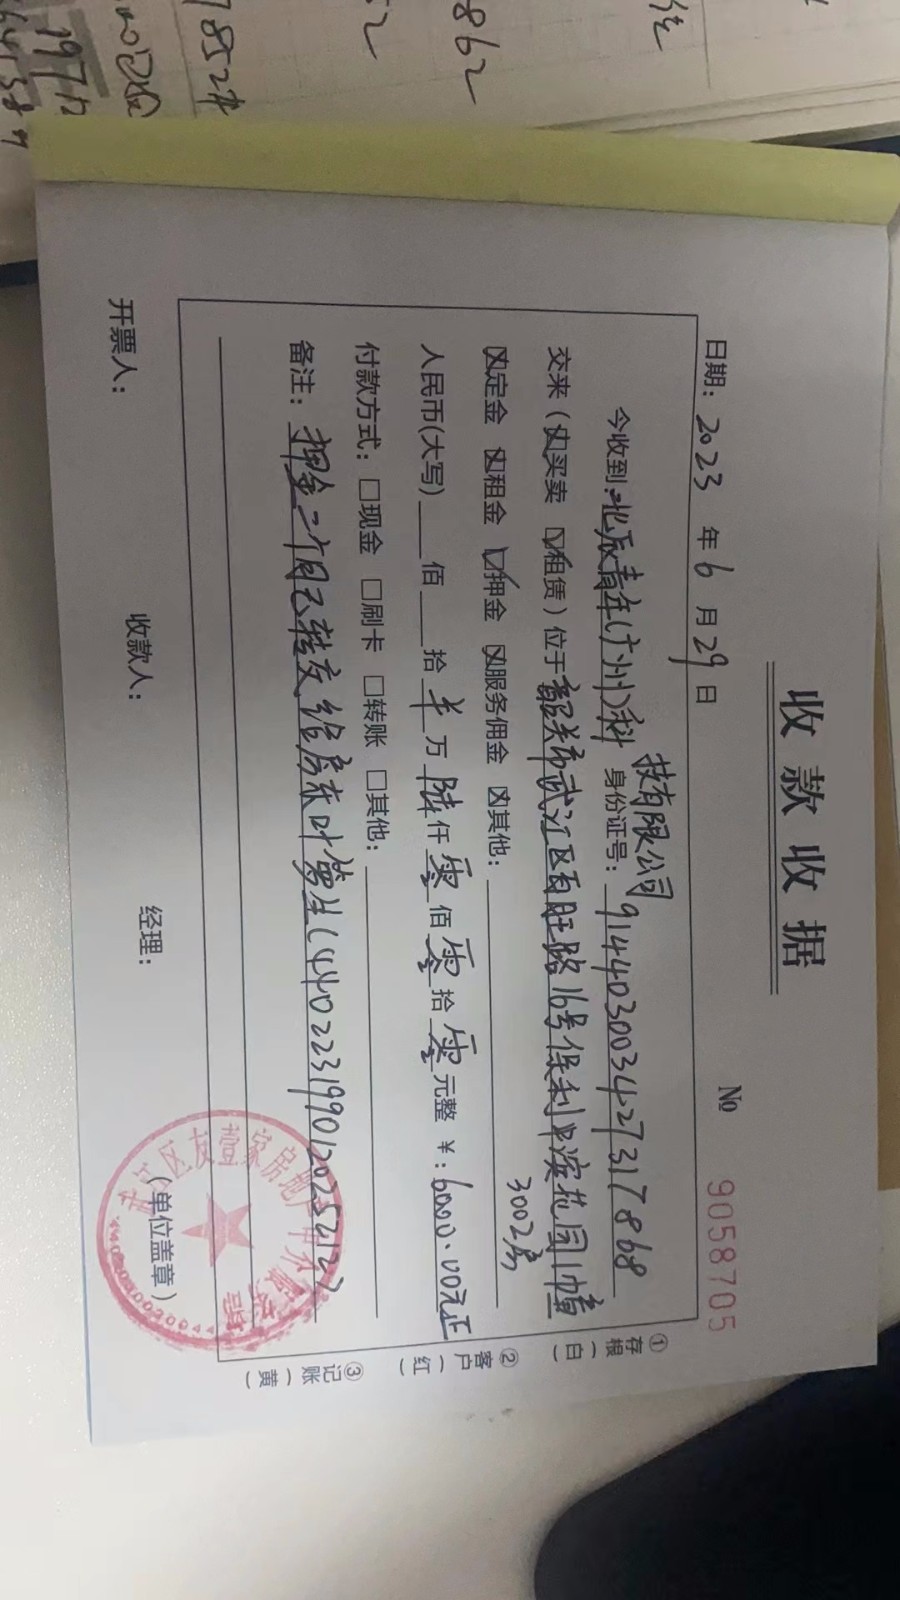 收款收据
№ 9058705
日期：2023 年 6 月 29 日
今收到：北辰青年(广州)科技有限公司 身份证号：91440300342731T868
交来（☒买卖 ☑租赁）位于韶关市武江区百旺路16号保利中滨花园1幢
3002房
☒定金 ☒租金 ☑押金 ☒服务佣金 ☒其他：
人民币(大写) 佰 拾 羊 万 陆 仟 零 佰 零 拾 零 元整 ￥：6000.00元正
付款方式：□现金 □刷卡 □转账 □其他：
备注：押金二个月已转交给房东叶
开票人： 收款人： 经理： （单位盖章）
①存根（白） ②客户（红） ③记账（黄）
武江区友壹家房地产中介服务部
8862
7852